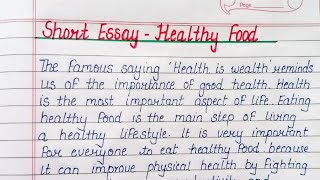 Page
Short Essay - Healthy Food
The Famous saying 'Health is wealth' reminds
us of the importance of good health. Health
is the most important aspect of life. Eating
healthy Food is the main step of living
a healthy lifestyle. It is very important
For everyone to eat healthy Food because
it can improve physical health by Fighting